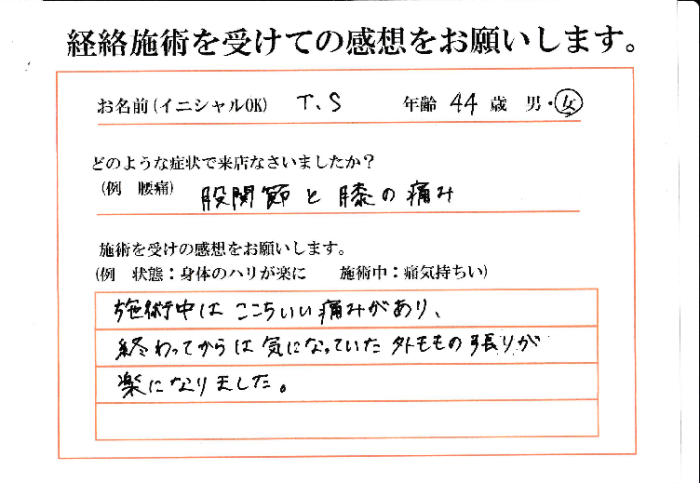 経絡施術を受けての感想をお願いします。
お名前(イニシャルOK) T.S 年齢 44 歳 男・女
どのような症状で来店なさいましたか？
(例 腰痛) 股関節と膝の痛み
施術を受けの感想をお願いします。
(例 状態：身体のハリが楽に 施術中：痛気持ちい)
施術中は ここちいい痛みがあり、
終わってからは気になっていた外ももの張りが
楽になりました。